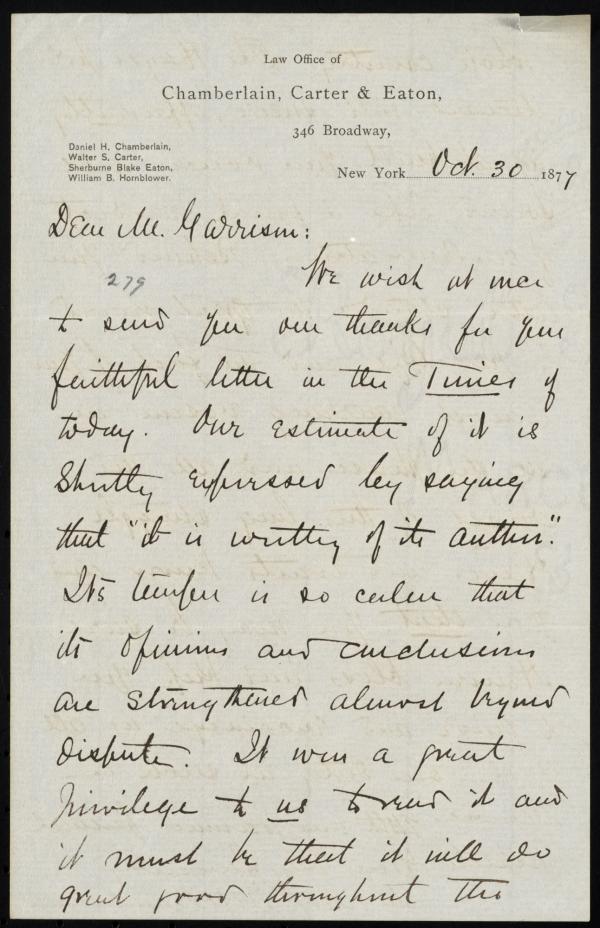 Law Office of
Chamberlain, Carter & Eaton,
346 Broadway,
Daniel H. Chamberlain,
Walter S. Carter,
Sherburne Blake Eaton,
William B. Hornblower.
New York Oct. 30 1877
Dear Mr. Garrison:
279
We wish at once
to send you our thanks for your
faithful letter in the Times of
today. Our estimate of it is
shortly expressed by saying
that "it is worthy of its author."
Its temper is so calm that
its opinions and conclusions
are strengthened almost beyond
dispute. It was a great
privilege to us to read it and
it must be that it will do
great good throughout the